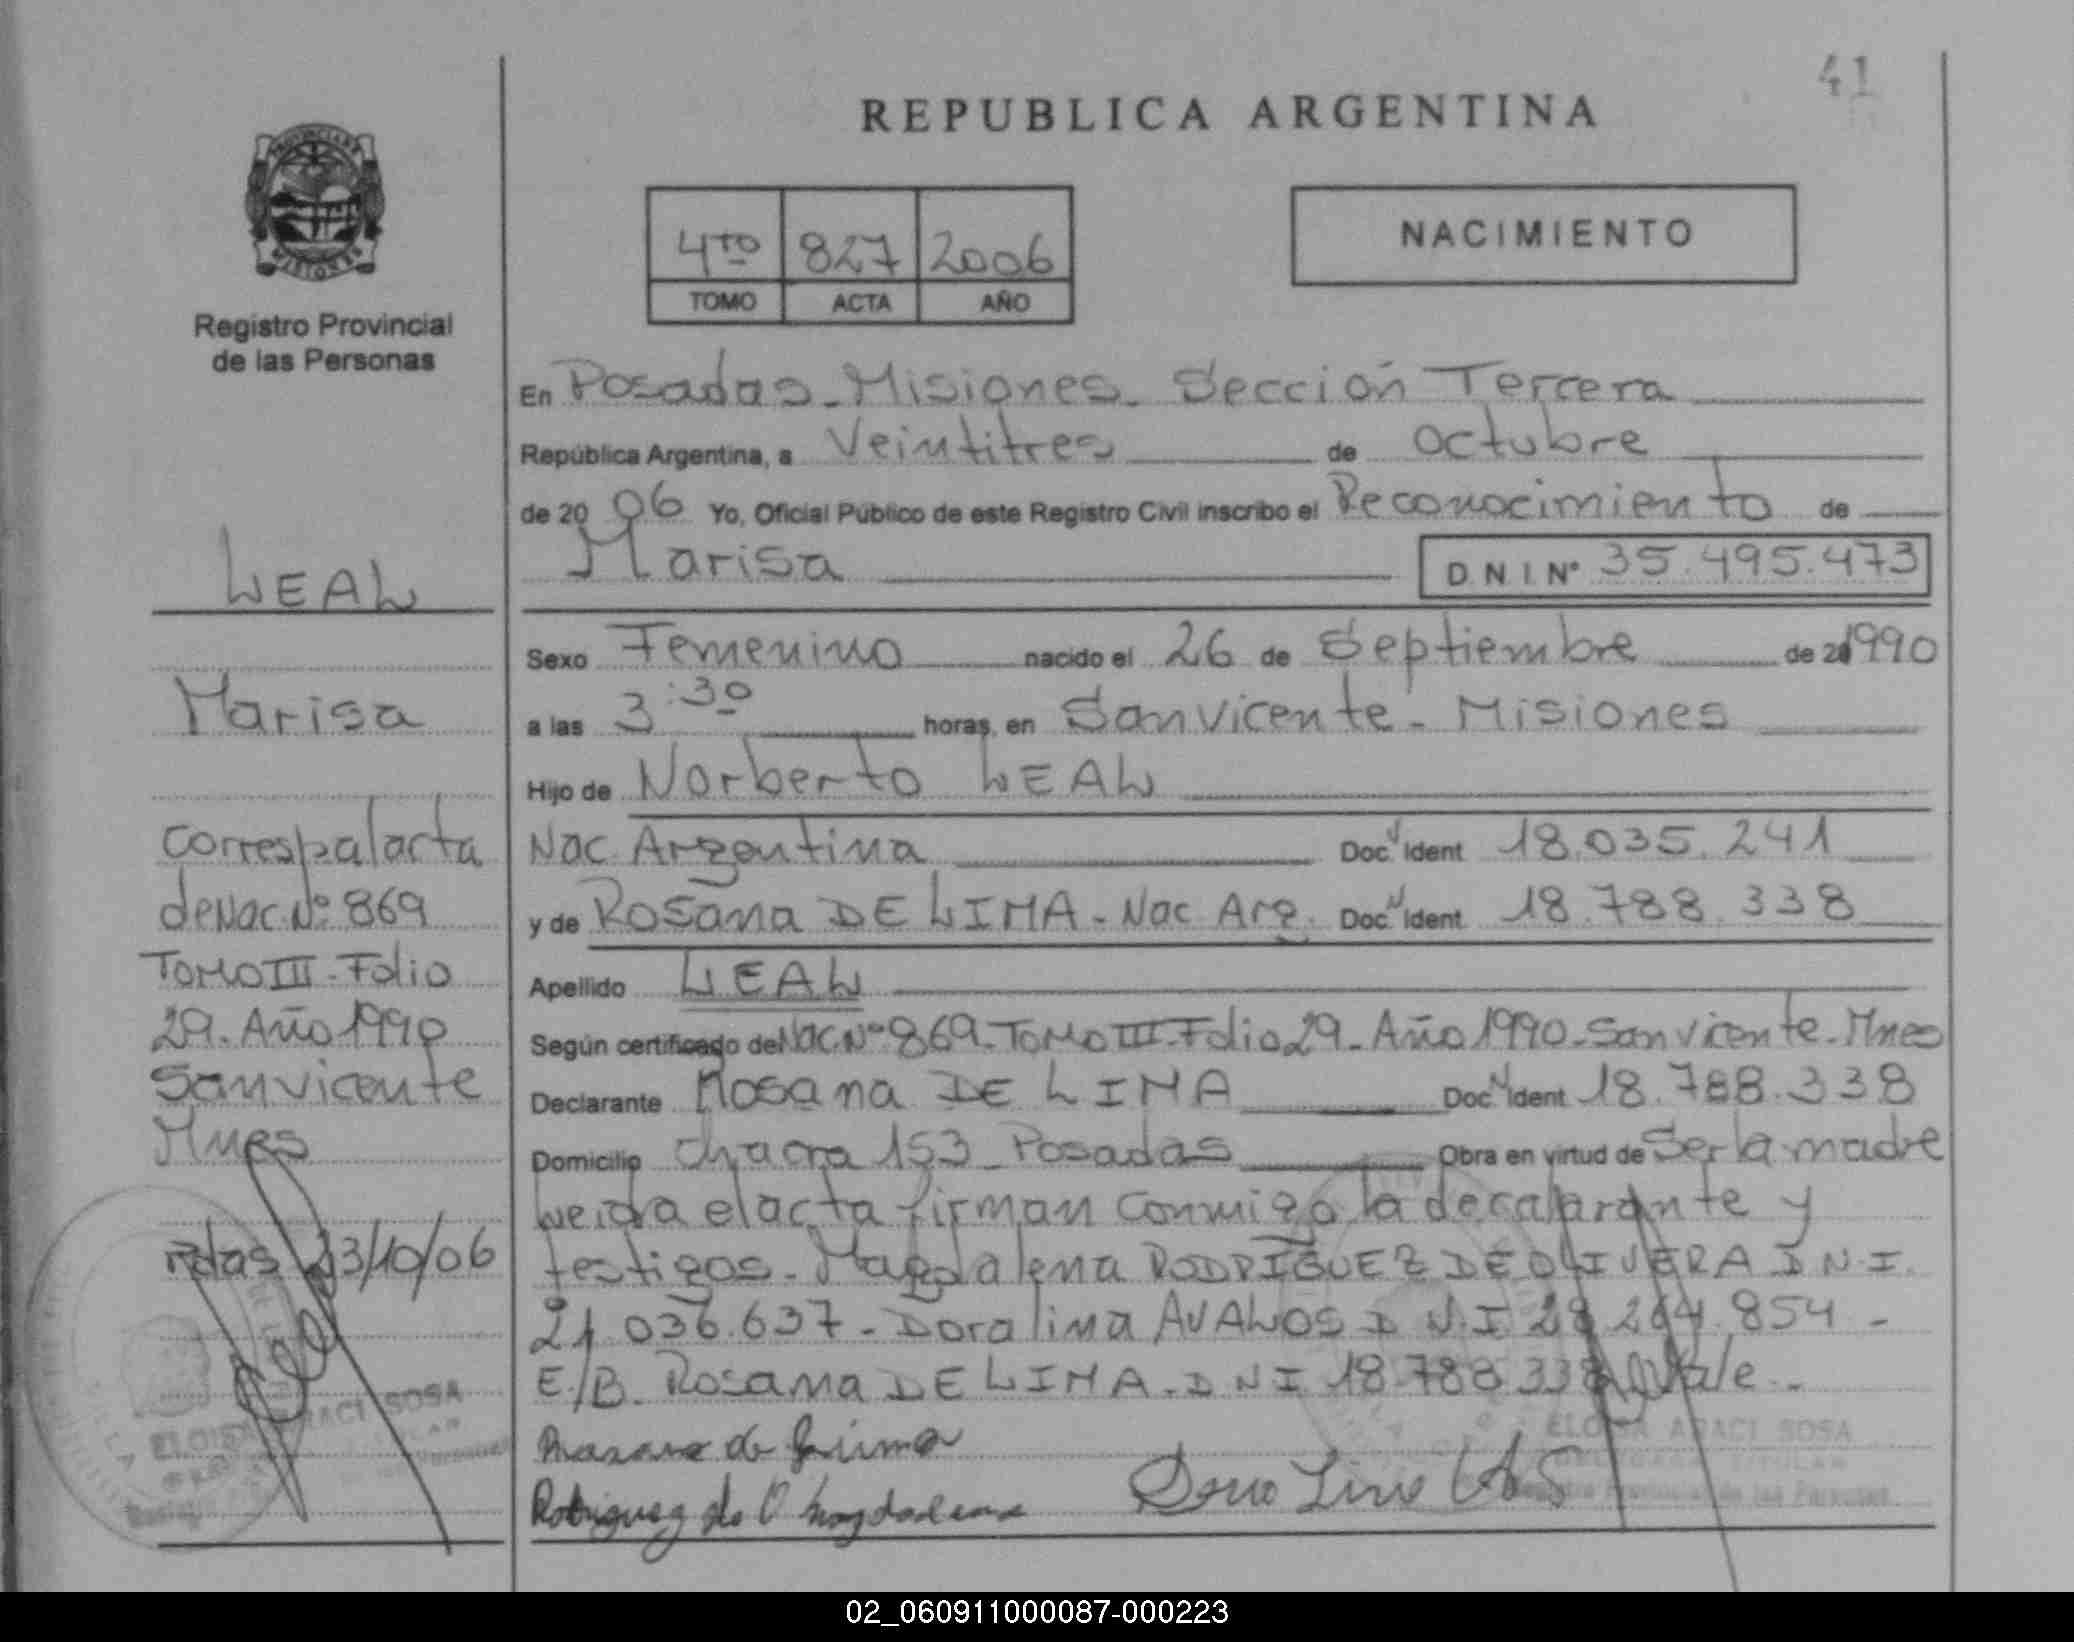 41
REPUBLICA ARGENTINA
PROVINCIA DE
MISIONES
Registro Provincial
de las Personas
4TO 827 2006
TOMO ACTA AÑO
NACIMIENTO
En Posadas - Misiones - Sección Tercera
República Argentina, a Veintitres de octubre
de 20 06 Yo, Oficial Público de este Registro Civil inscribo el Reconocimiento de
Marisa D N I N° 35.495.473
Sexo Femenino nacido el 26 de Septiembre de 1990
a las 3:30 horas, en San Vicente - Misiones
Hijo de Norberto LEAL
Nac. Argentina Doc N Ident 18.035.241
y de Rosana DE LIMA - Nac Arg. Doc N Ident 18.788.338
Apellido LEAL
Según certificado de Nac. N° 869 - Tomo III - Folio 29 - Año 1990 - San Vicente - Mnes
Declarante Rosana DE LIMA Doc N Ident 18.788.338
Domicilio Chacra 153 - Posadas Obra en virtud de Ser la madre
Leida el acta firman conmigo la decalarante y
testigos - Magdalena RODRIGUEZ DE OLIVERA D N.I.
21.036.637 - Doralina AVALOS D N.I 28.264.854 -
E/B. Rosana DE LIMA - D N I 18.788.338 Vale -
Rosana de Lima
Rodriguez de O Magdalena
ELOISA ARACI SOSA
DELEGADA TITULAR
Registro Provincial de las Personas
LEAL
Marisa
Corresp al acta
de Nac. N° 869
Tomo III - Folio
29 - Año 1990
San Vicente
Mnes
Pdas 23/10/06
ELOISA ARACI SOSA
02_060911000087-000223